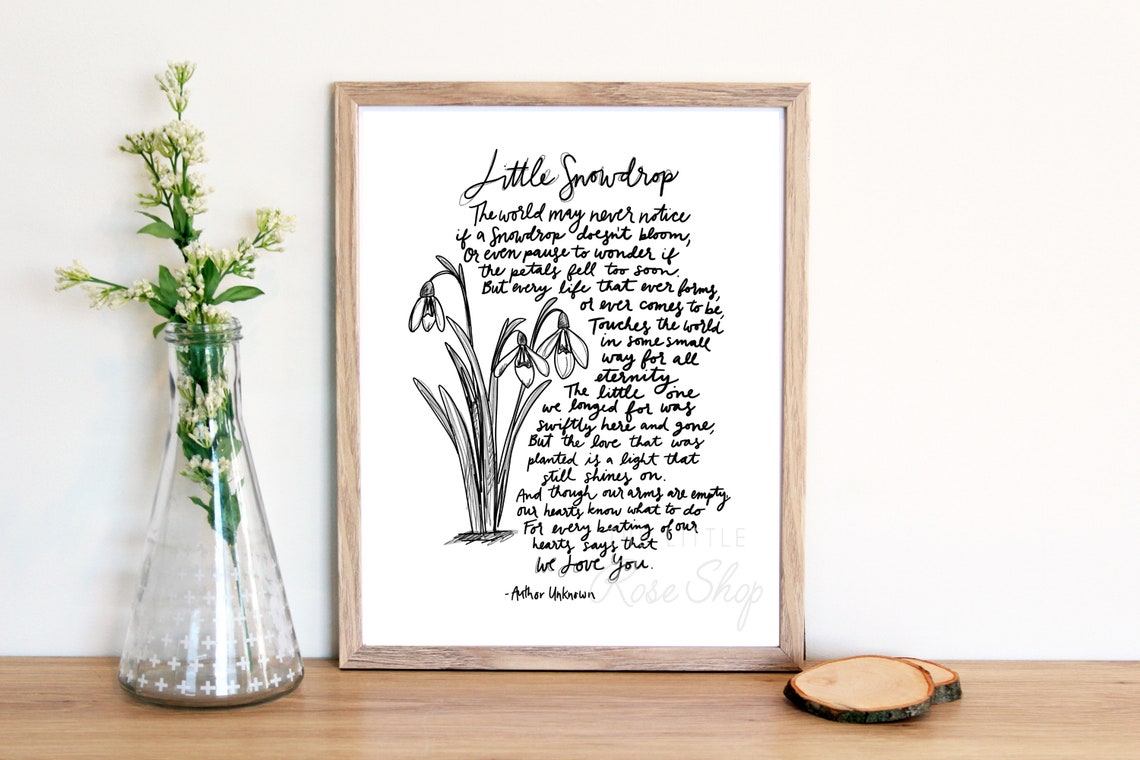 Little Snowdrop
The world may never notice
if a Snowdrop doesn't bloom,
Or even pause to wonder if
the petals fell too soon.
But every life that ever forms,
or ever comes to be,
Touches the world
in some small
way for all
eternity
The little one
we longed for was
swiftly here and gone,
But the love that was
planted is a light that
still shines on.
And though our arms are empty,
our hearts know what to do
For every beating of our
hearts says that
We Love You.
-Author Unknown
LITTLE
Rose Shop